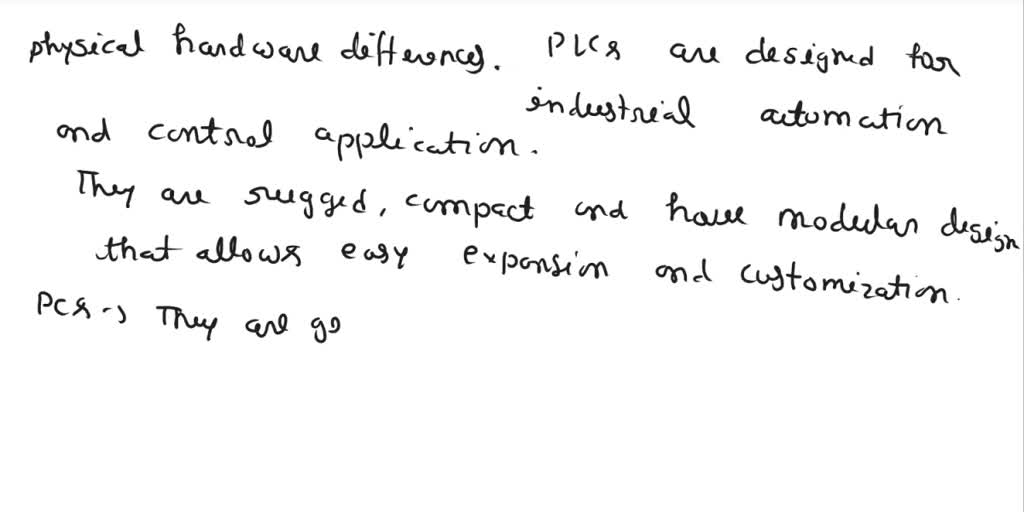 physical hardware differences. PLCs are designed for
industrial automation
and control application.
They are rugged, compact and have modular design
that allows easy expansion and customization.
PCs -> They are go